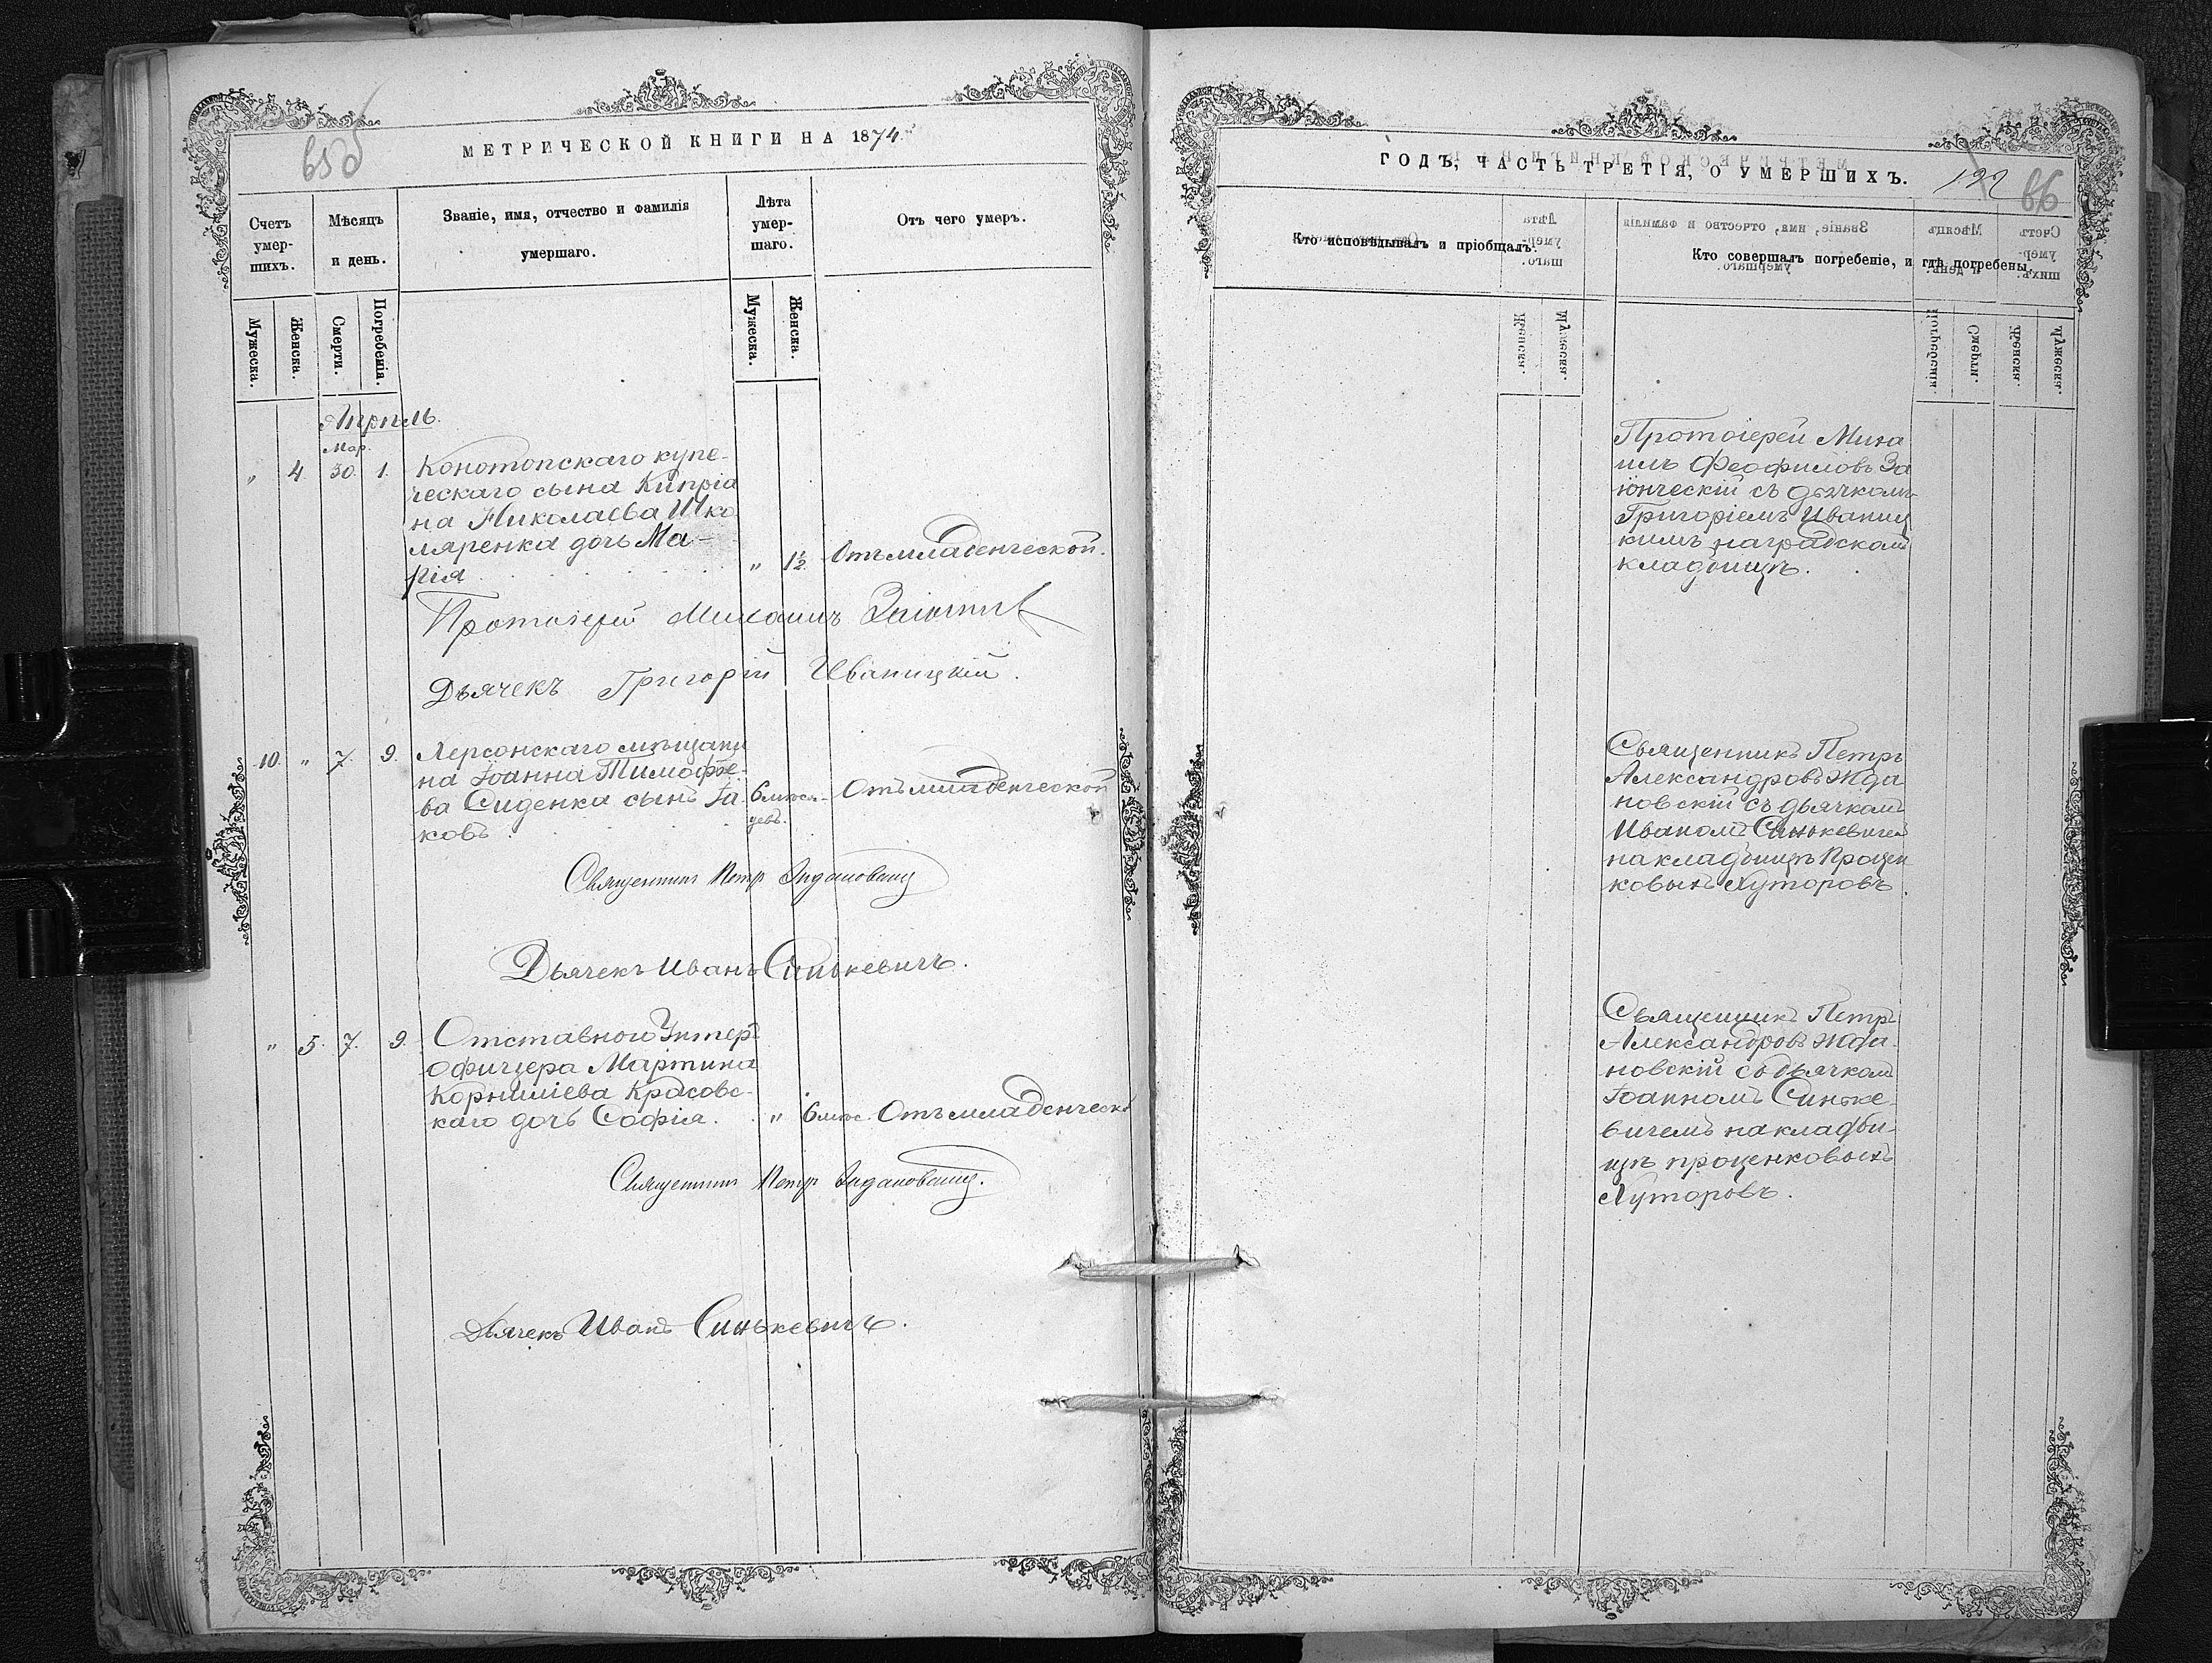 65об
МЕТРИЧЕСКОЙ КНИГИ НА 1874
Счетъ умер-шихъ.
Мѣсяцъ и день.
Званіе, имя, отчество и фамилія умершаго.
Лѣта умер-шаго.
Отъ чего умеръ.
Мужеска.
Женска.
Смерти.
Погребенія.
Мужеска.
Женска.
Апрѣль.
Мар.
" 4 30. 1. Конотопскаго купе-
ческаго сына Кипріа
на Николаева Шко
ляренка дочь Ма-
рія " 1½ Отъ младенческой.
Протоіерей Михаилъ
Дьячекъ Григорій Иваницкій.
10. " 7. 9. Херсонскаго мѣщани
на Іоанна Тимофѣе-
ва Сиденка сынъ Іа
ковъ
6 мѣся-
цевъ.
Отъ младенческой
Священникъ Петр Ждановскій
Дьячекъ Иванъ Синькевичъ.
" 5. 7. 9. Отставного Унтеръ
офицера Мартина
Корниліева Красовс-
каго дочь Софія. " 6 мѣс. Отъ младенческой
Священникъ Петр Ждановскій.
Дьячекъ Иванъ Синькевичъ.
ГОДЪ, ЧАСТЬ ТРЕТІЯ, О УМЕРШИХЪ.
122
66
Кто исповѣдывалъ и пріобщалъ.
Кто совершалъ погребеніе, и гдѣ погребены.
Протоіерей Миха
илъ Феофиловъ За
юнческій съ дьячкомъ
Григоріемъ Иваниц
кимъ на градскомъ
кладбищѣ.
Священникъ Петръ
Александровъ Жда
новскій съ дьячкомъ
Иваномъ Синькевичем
на кладбищѣ Процен
ковыхъ Хуторовъ.
Священникъ Петръ
Александровъ Жда-
новскій со дьячком
Іоанномъ Синьке-
вичемъ на кладби-
щѣ проценковыхъ
Хуторовъ.